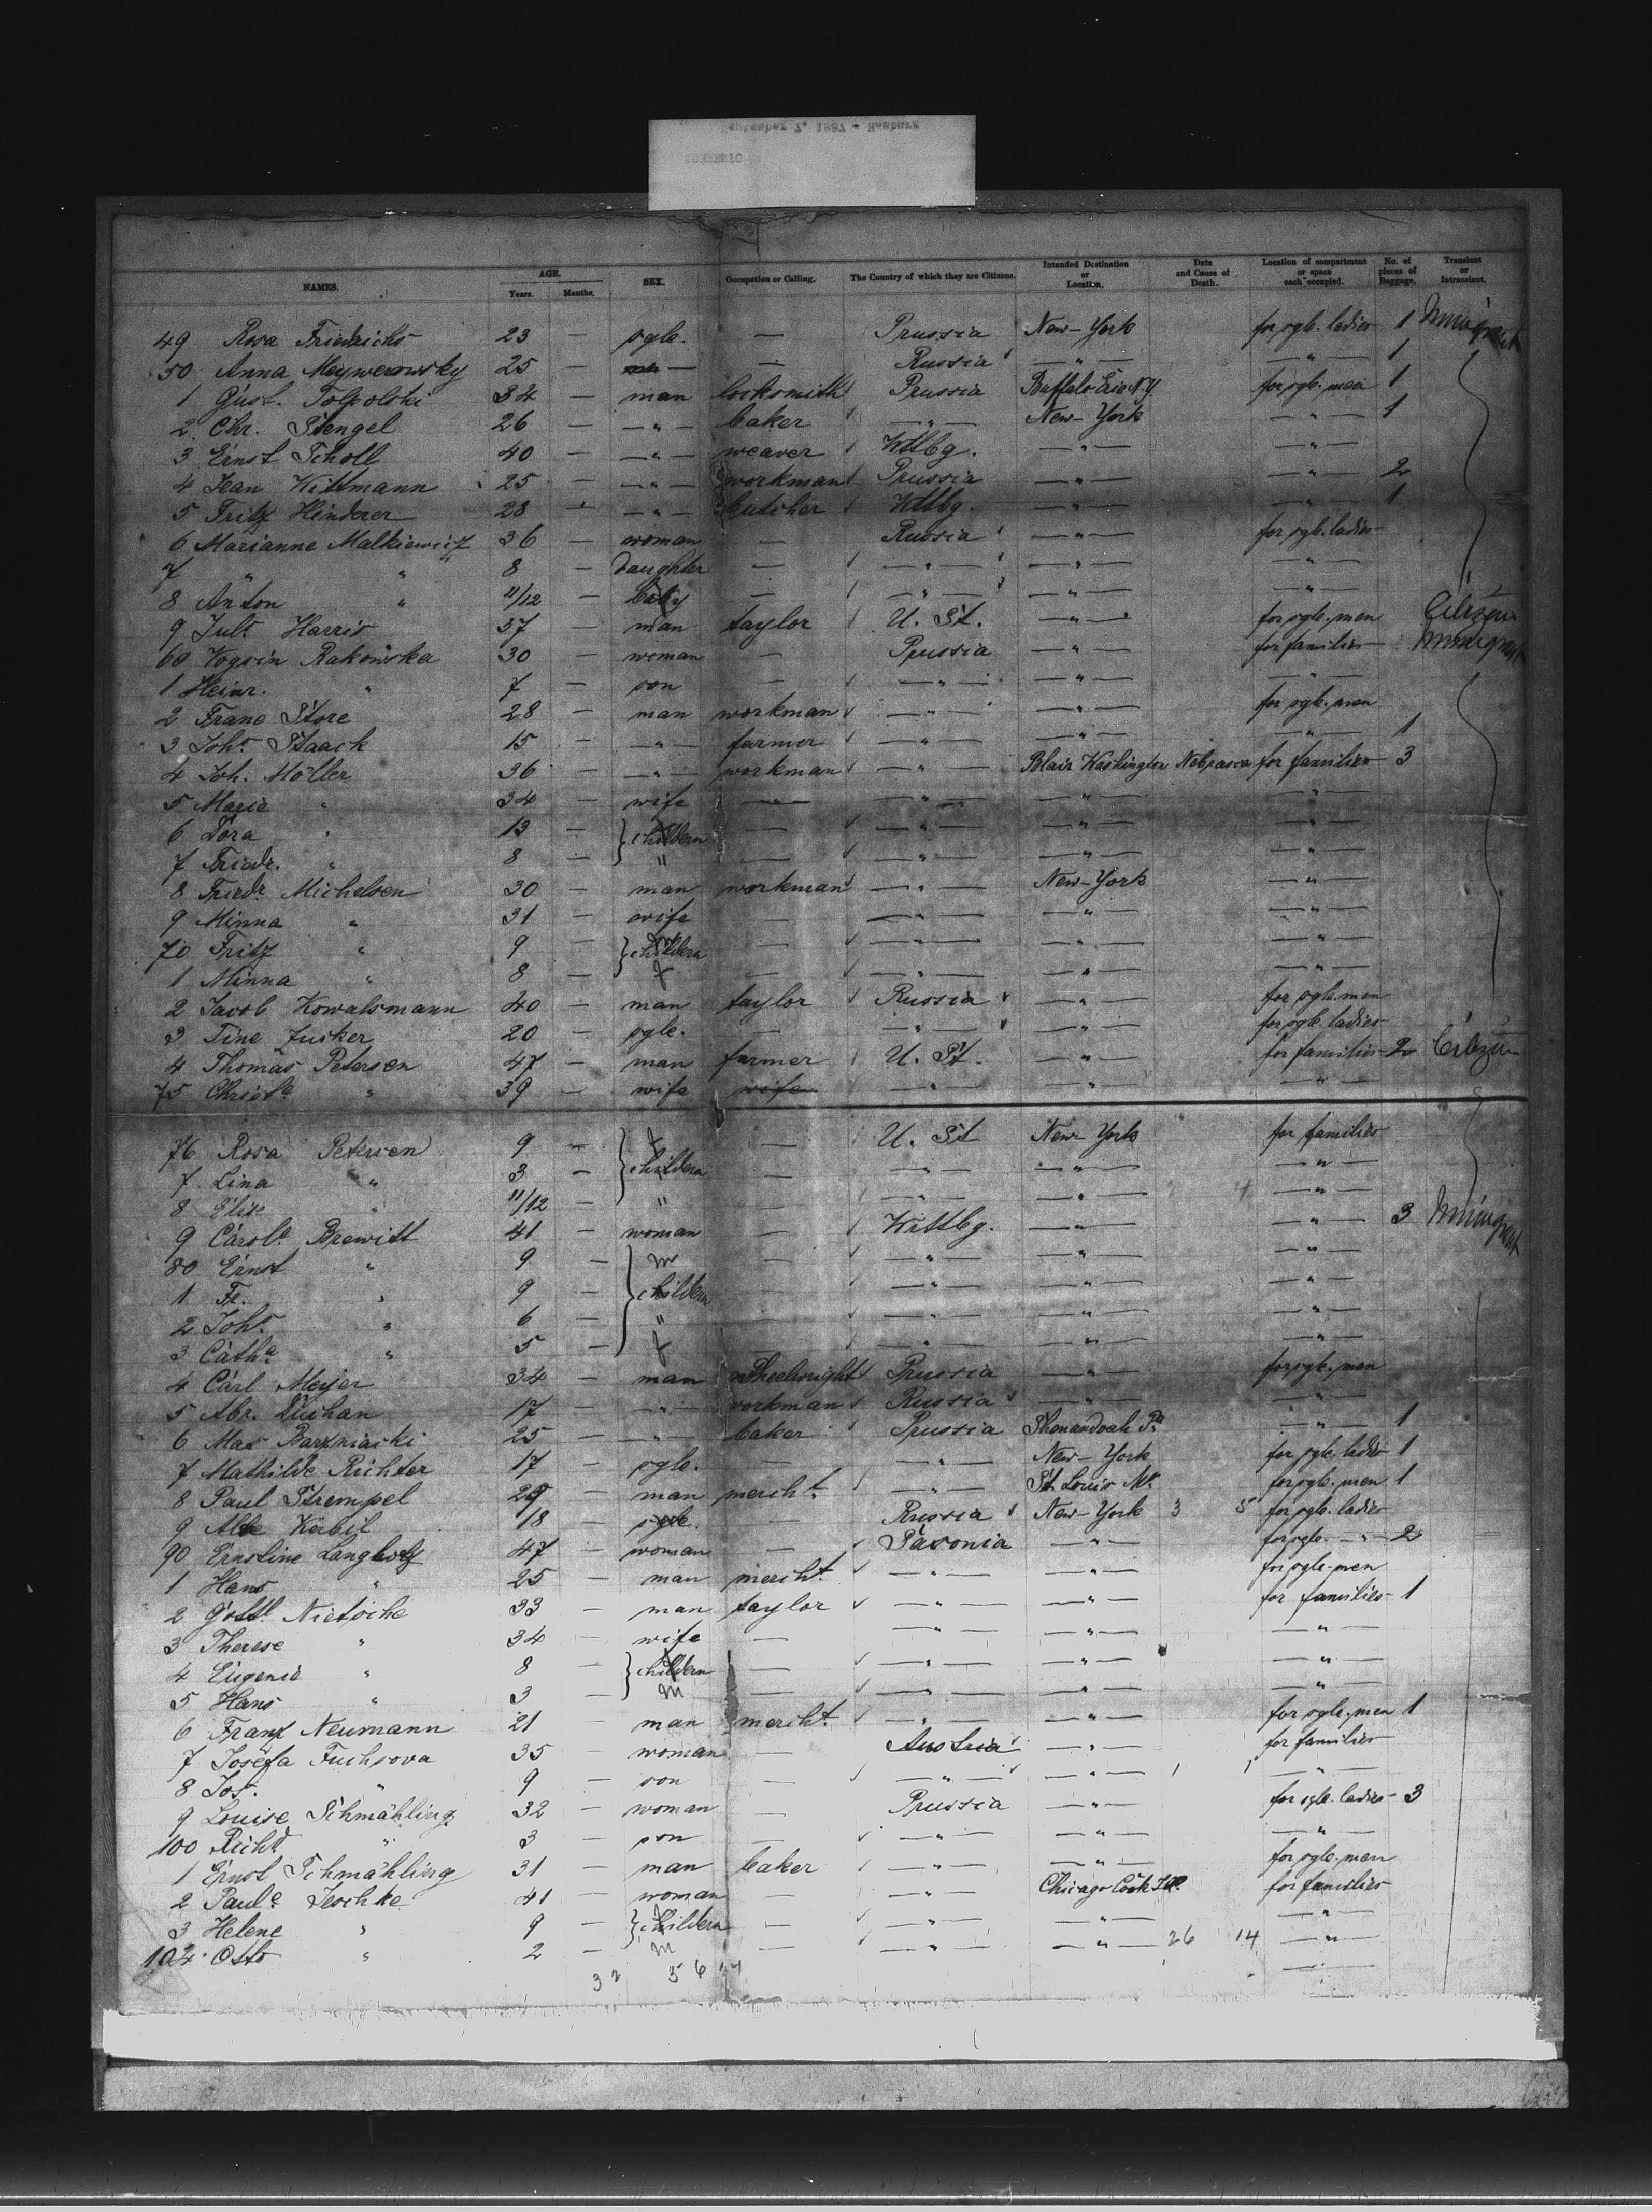 September 7, 1887 - Hamburg
NAMES. AGE. Years. Months. SEX. Occupation or Calling. The Country of which they are Citizens. Intended Destination or Location. Date and Cause of Death. Location of compartment or space each occupied. No. of pieces of Baggage. Transient or Intransient.
49 Rosa Friedrichs 23 — sgle. — Prussia New-York for sgle. ladies 1
50 Anna Meywerowsky 25 — — Russia —"— —"— 1
1 Gust. Tolpolski 34 — man locksmith Prussia Buffalo Erie N.Y. for sgle. men 1
2 Chr. Stengel 26 — —"— baker —"— New-York —"— 1
3 Ernst Scholl 40 — —"— weaver Wttbg. —"— —"—
4 Jean Wittmann 25 — —"— workman Prussia —"— —"— 2
5 Fritz Hinderer 28 — —"— butcher Wttbg. —"— —"— 1
6 Marianne Malkiewicz 36 — woman — Russia —"— for sgle. ladies
7 " " 8 — daughter — —"— —"— —"—
8 Anton " 11/12 baby — —"— —"— —"—
9 Juls. Harris 37 — man taylor U. St. —"— for sgle. men Citizen
60 Rakowska 30 — woman — Prussia —"— for families
1 Heinr. " 7 — son — —"— —"— —"—
2 Franc Store 28 — man workman —"— —"— for sgle. men
3 Johs. Staack 15 — —"— farmer —"— —"— —"— 1
4 Joh. Möller 36 — —"— workman —"— Blair Washington for families 3
5 Maria " 34 — wife — —"— —"— —"—
6 Dora " 13 — childern — —"— —"— —"—
7 Friedr. " 8 — " — —"— —"— —"—
8 Friedr. Michelsen 30 — man workman —"— New-York —"—
9 Minna " 31 — wife — —"— —"— —"—
70 Fritz " 9 — childern — —"— —"— —"—
1 Minna " 8 — f — —"— —"— —"—
2 Jacob Kowalsmann 40 — man taylor Russia —"— for sgle. men
3 Tine Zucker 20 — sgle. — —"— —"— for sgle. ladies
4 Thomas Petersen 47 — man farmer U. St. —"— for families 2 Citizen
75 Christe " 39 — wife wife —"— —"— —"—
76 Rosa Petersen 9 — f — U. St New York for families
7 Lina " 3 — childern — —"— —"— —"—
8 Elise " 11/12 — " — —"— —"— —"—
9 Carole. Brewitt 41 — woman — Wttbg. —"— —"— 3
80 Ernst " 9 — m — —"— —"— —"—
1 Fr. " 9 childern — —"— —"— —"—
2 Johs. " 6 " — —"— —"— —"—
3 Catha. " 5 f — —"— —"— —"—
4 Carl Meyer 34 — man wheelwright Prussia —"— for sgle. men
5 Abr. Duchan 17 — —"— workman Russia —"— —"—
6 Max 25 — —"— baker Prussia Shenandoah Pa. —"— 1
7 Mathilde Richter 17 — sgle. — —"— New-York for sgle. ladies 1
8 Paul Strempel 29 — man mercht. —"— St. Louis Mo. for sgle. men 1
9 Kerbil 18 — sgle. — Russia New-York 3 5 for sgle. ladies
90 Ernstine Langholz 47 — woman — Saxonia —"— for sgle. —"— 2
1 Hans " 25 — man mercht. —"— —"— for sgle. men
2 Gottl. Nietsche 33 — man taylor —"— —"— for families 1
3 Therese " 34 — wife — —"— —"— —"—
4 Eugenie " 8 — childern — —"— —"— —"—
5 Hans " 3 — m — —"— —"— —"—
6 Franz Neumann 21 — man mercht. —"— —"— for sgle. men 1
7 Josefa Fuchsova 35 — woman — Austria —"— for families
8 Jos. " 9 — son — —"— —"— 1 1 —"—
9 Louise Schmähling 32 — woman — Prussia —"— for sgle. ladies 3
100 Richd. " 3 — son — —"— —"— —"—
1 Ernst Schmähling 31 — man baker —"— —"— for sgle. men
2 Paule. Jeschke 41 — woman — —"— Chicago Cook Ill. for families
3 Helene " 9 — childern — —"— —"— —"—
104 Otto " 2 — m — —"— —"— 26 14 —"—